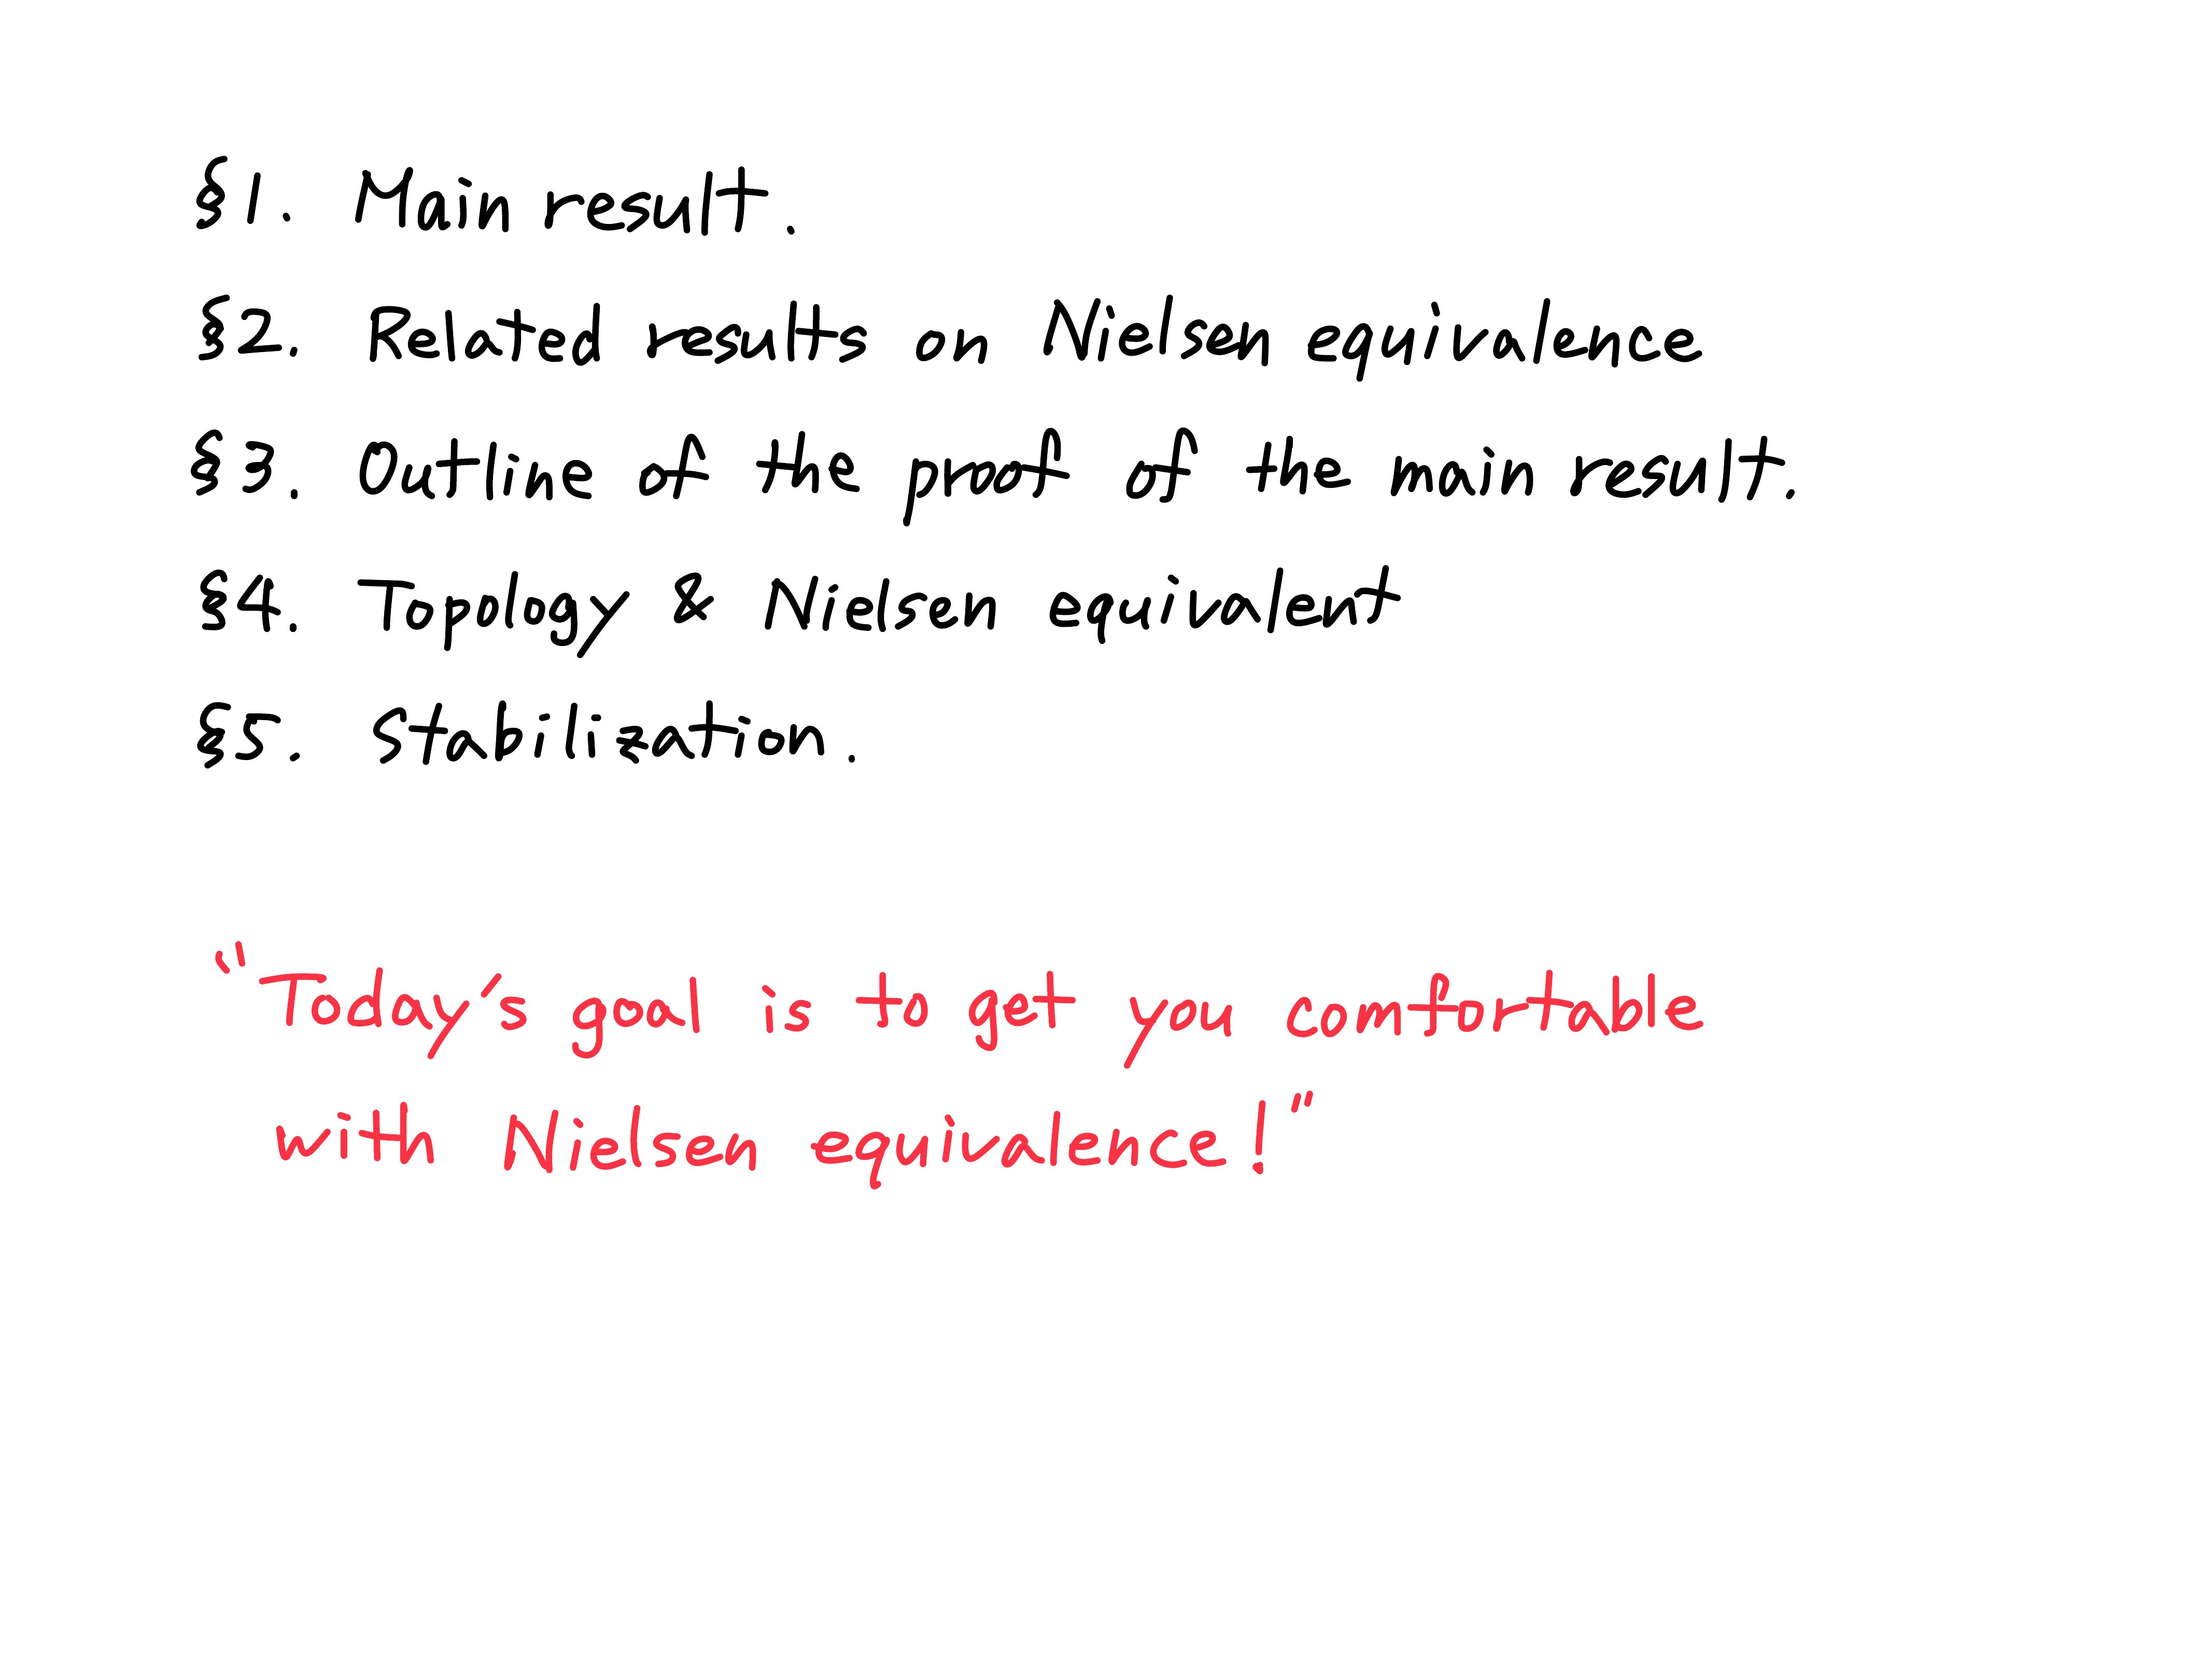 §1. Main result.
§2. Related results on Nielsen equivalence
§3. Outline of the proof of the main result.
§4. Topology & Nielsen equivalent
§5. Stabilization.
"Today's goal is to get you comfortable
with Nielsen equivalence!"